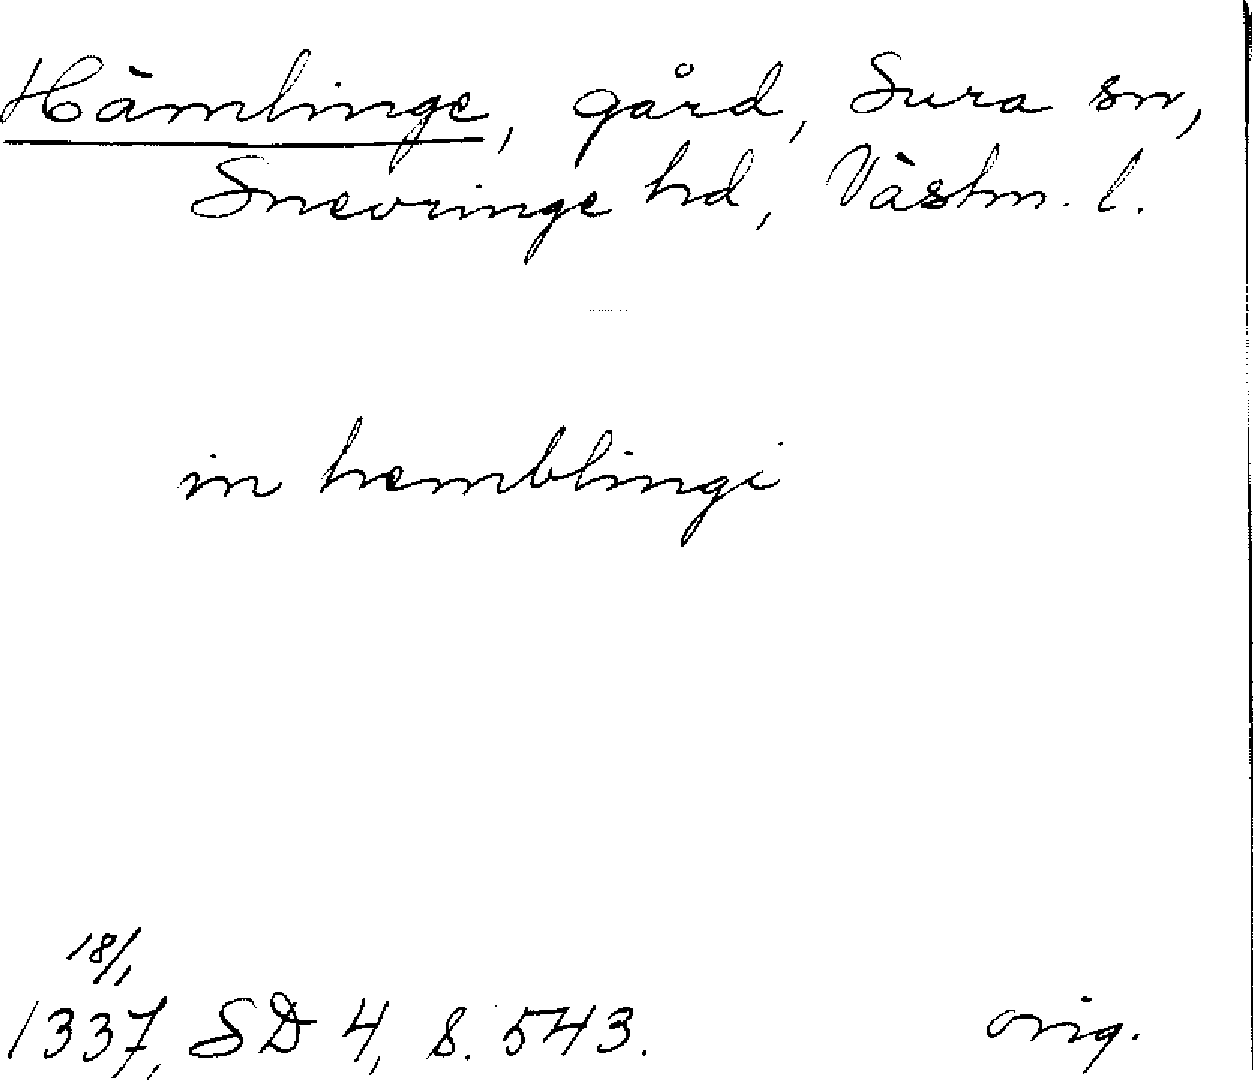 Hämlinge, gård, Sura sn,
Snevringe hd, Västm. l.
in hemblingi
18/1
1337, SD 4, s. 543. orig.